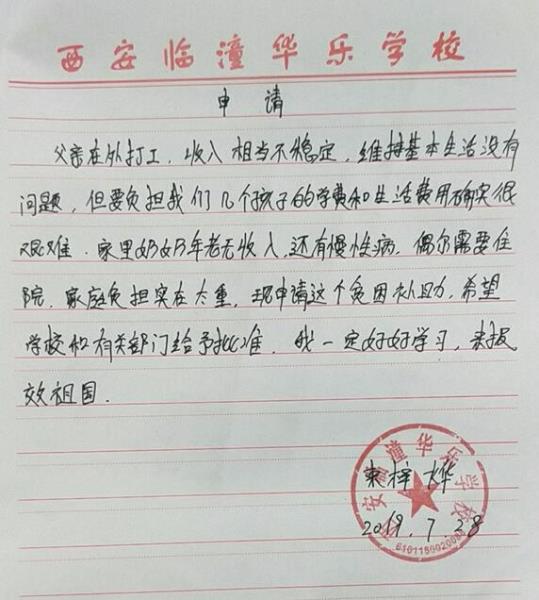 西安临潼华乐学校
申请
父亲在外打工，收入相当不稳定，维持基本生活没有
问题，但要负担我们几个孩子的学费和生活费用确实很
艰难．家里奶奶年老无收入，还有慢性病，偶尔需要住
院．家庭负担实在太重，现申请这个贫困补助，希望
学校和有关部门给予批准．我一定好好学习，来报
效祖国．
西安临潼华乐学校
梓烨
2019.7.28